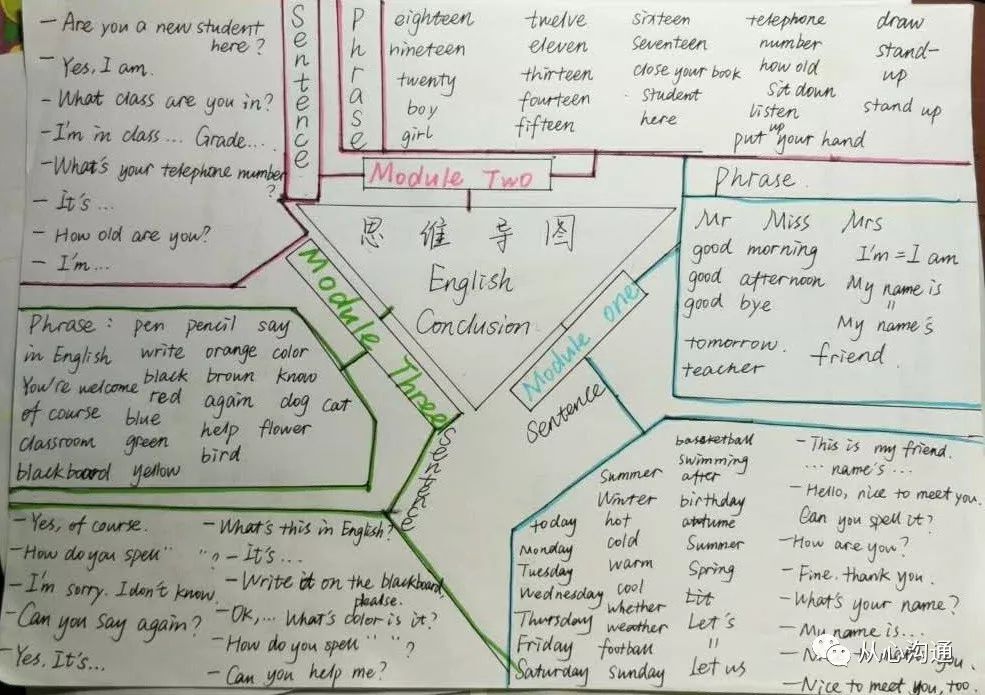 - Are you a new student
here?
- Yes, I am.
- What class are you in?
- I'm in class... Grade....
- What's your telephone number
?
- It's...
- How old are you?
- I'm...
Sentence
Phrase
eighteen twelve sixteen telephone draw
nineteen eleven seventeen number stand-
up
twenty thirteen close your book how old
boy fourteen student sit down stand up
girl fifteen here listen
put up your hand
Module Two
思维导图
English
Conclusion
Module one
Phrase.
Mr Miss Mrs
good morning I'm = I am
good afternoon My name is
good bye =
My name's
tomorrow. friend
teacher
Module Three
Phrase: pen pencil say
in English write orange color
You're welcome black brown know
of course red again dog cat
classroom blue help flower
blackboard green bird
yellow
Sentence
- Yes, of course.
- How do you spell " "?
- I'm sorry. I don't know.
- Can you say again?
- Yes. It's...
- What's this in English?
- It's...
- Write it on the blackboard,
please.
- Ok,... What's color is it?
- How do you spell " "?
- Can you help me?
Sentence
basketball
swimming
Summer after
Winter birthday
today hot
Monday cold Summer
Tuesday warm Spring
Wednesday cool
Thursday whether Let's
weather =
Friday football Let us
Saturday sunday
- This is my friend.
... name's...
- Hello, nice to meet you.
Can you spell it?
- How are you?
- Fine. thank you.
- What's your name?
- My name is...
- Nice to meet you, too.
从心沟通